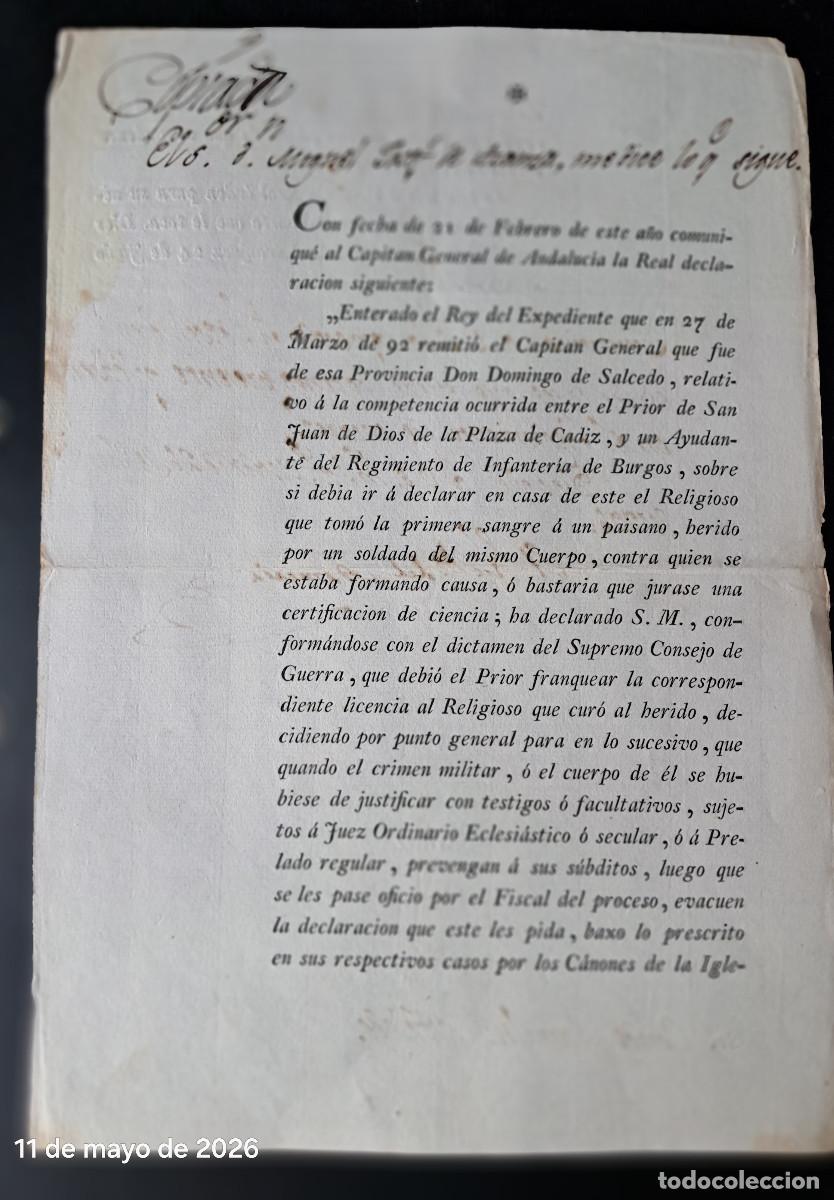 El S. D. Miguel Josef de Azanza, me dice lo q sigue.
Con fecha de 21 de Febrero de este año comuni-
qué al Capitan General de Andalucia la Real decla-
racion siguiente:
„Enterado el Rey del Expediente que en 27 de
Marzo de 92 remitió el Capitan General que fue
de esa Provincia Don Domingo de Salcedo, relati-
vo á la competencia ocurrida entre el Prior de San
Juan de Dios de la Plaza de Cadiz, y un Ayudan-
te del Regimiento de Infantería de Burgos, sobre
si debia ir á declarar en casa de este el Religioso
que tomó la primera sangre á un paisano, herido
por un soldado del mismo Cuerpo, contra quien se
estaba formando causa, ó bastaria que jurase una
certificacion de ciencia; ha declarado S. M., con-
formándose con el dictamen del Supremo Consejo de
Guerra, que debió el Prior franquear la correspon-
diente licencia al Religioso que curó al herido, de-
cidiendo por punto general para en lo sucesivo, que
quando el crimen militar, ó el cuerpo de él se hu-
biese de justificar con testigos ó facultativos, suje-
tos á Juez Ordinario Eclesiástico ó secular, ó á Pre-
lado regular, prevengan á sus súbditos, luego que
se les pase oficio por el Fiscal del proceso, evacuen
la declaracion que este les pida, baxo lo prescrito
en sus respectivos casos por los Cánones de la Igle-
11 de mayo de 2026
todocoleccion